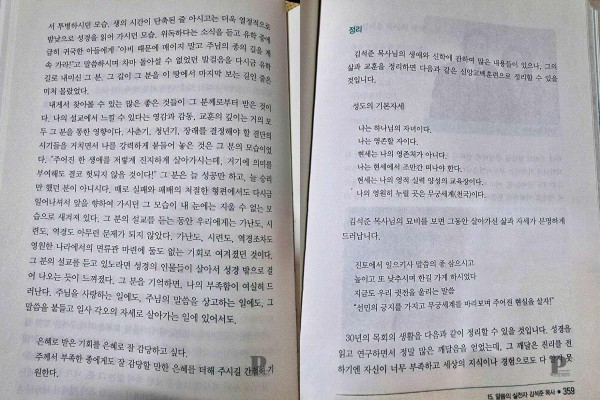 서 투병하시던 모습, 생의 시간이 단축된 줄 아시고는 더욱 열정적으로
밤낮으로 성경을 읽어 가시던 모습, 위독하다는 소식을 듣고 유학 중에
급히 귀국한 아들에게 "아비 때문에 매이지 말고 주님의 종의 길을 계
속 가라!"고 말씀하시며 차마 돌아설 수 없었던 발걸음을 다시금 유학
길로 내미신 그 분. 그 길이 그 분을 이 땅에서 마지막 보는 길인 줄은
미처 몰랐었다.
내게서 찾아볼 수 있는 많은 좋은 것들이 그 분께로부터 받은 것이
다. 나의 설교에서 느낄 수 있다는 영감과 감동, 교훈의 깊이는 거의 모
두 그 분을 통한 영향이다. 사춘기, 청년기, 장래를 결정해야 할 결단의
시기들을 거치면서 나를 강력하게 붙들어 놓은 것은 그 분의 모습이었
다. "주어진 한 생애를 저렇게 진지하게 살아가시는데, 거기에 의미를
부여해도 결코 헛되지 않을 것이다!" 그 분은 늘 성공만 하고, 늘 승리
만 했던 분이 아니시다. 때로 실패와 패배의 처절한 형편에서도 다시금
일어나셔서 앞을 향하여 가시던 그 모습이 내 눈에는 지울 수 없는 모
습으로 새겨져 있다. 그 분의 설교를 듣는 동안 우리에게는 가난도, 시
련도, 역경도 아무런 문제가 되지 않았다. 가난도, 시련도, 역경조차도
영원한 나라에서의 면류관 마련에 둘도 없는 기회로 여겨졌던 것이다.
그 분의 설교를 듣고 있노라면 성경의 인물들이 살아서 성경 밖으로 걸
어 나오는 듯이 느껴졌다. 그 분을 기억하면, 나의 부족함이 여실히 드
러난다. 주님을 사랑하는 일에도, 주님의 말씀을 상고하는 일에도, 그
말씀을 붙들고 일사 각오의 자세로 살아가는 일에 있어서도.
은혜로 받은 기회를 은혜로 잘 감당하고 싶다.
주께서 부족한 종에게도 잘 감당할 만한 은혜를 더해 주시길 간절히 기
원한다.
정리
김석준 목사님의 생애와 신학에 관하여 많은 내용들이 있으나, 그의
삶과 교훈을 정리하면 다음과 같은 신앙고백훈련으로 정리할 수 있을
것입니다.
성도의 기본자세
나는 하나님의 자녀이다.
나는 영존할 자이다.
현세는 나의 영존처가 아니다.
나는 현세에서 조만간 떠나야 한다.
현세는 나의 영적 실력 양성의 교육장이다.
나의 영원히 누릴 곳은 무궁세계(천국)이다.
김석준 목사님의 묘비를 보면 그동안 살아가신 삶과 자세가 분명하게
드러납니다.
진토에서 일으키사 말씀의 종 삼으시고
높이고 또 낮추시며 한길 가게 하시었다
지금도 우리 귓전을 울리는 말씀
"선민의 긍지를 가지고 무궁세계를 바라보며 주어진 현실을 살자!"
30년의 목회의 생활을 다음과 같이 정리할 수 있을 것입니다. 성경을
읽고 연구하면서 정말 많은 깨달음을 얻었는데, 그 깨달은 진리를 전
하기엔 자신이 너무 부족하고 세상의 지식이나 경험으로도 다 못
15. 말씀의 실천자 김석준 목사 • 359